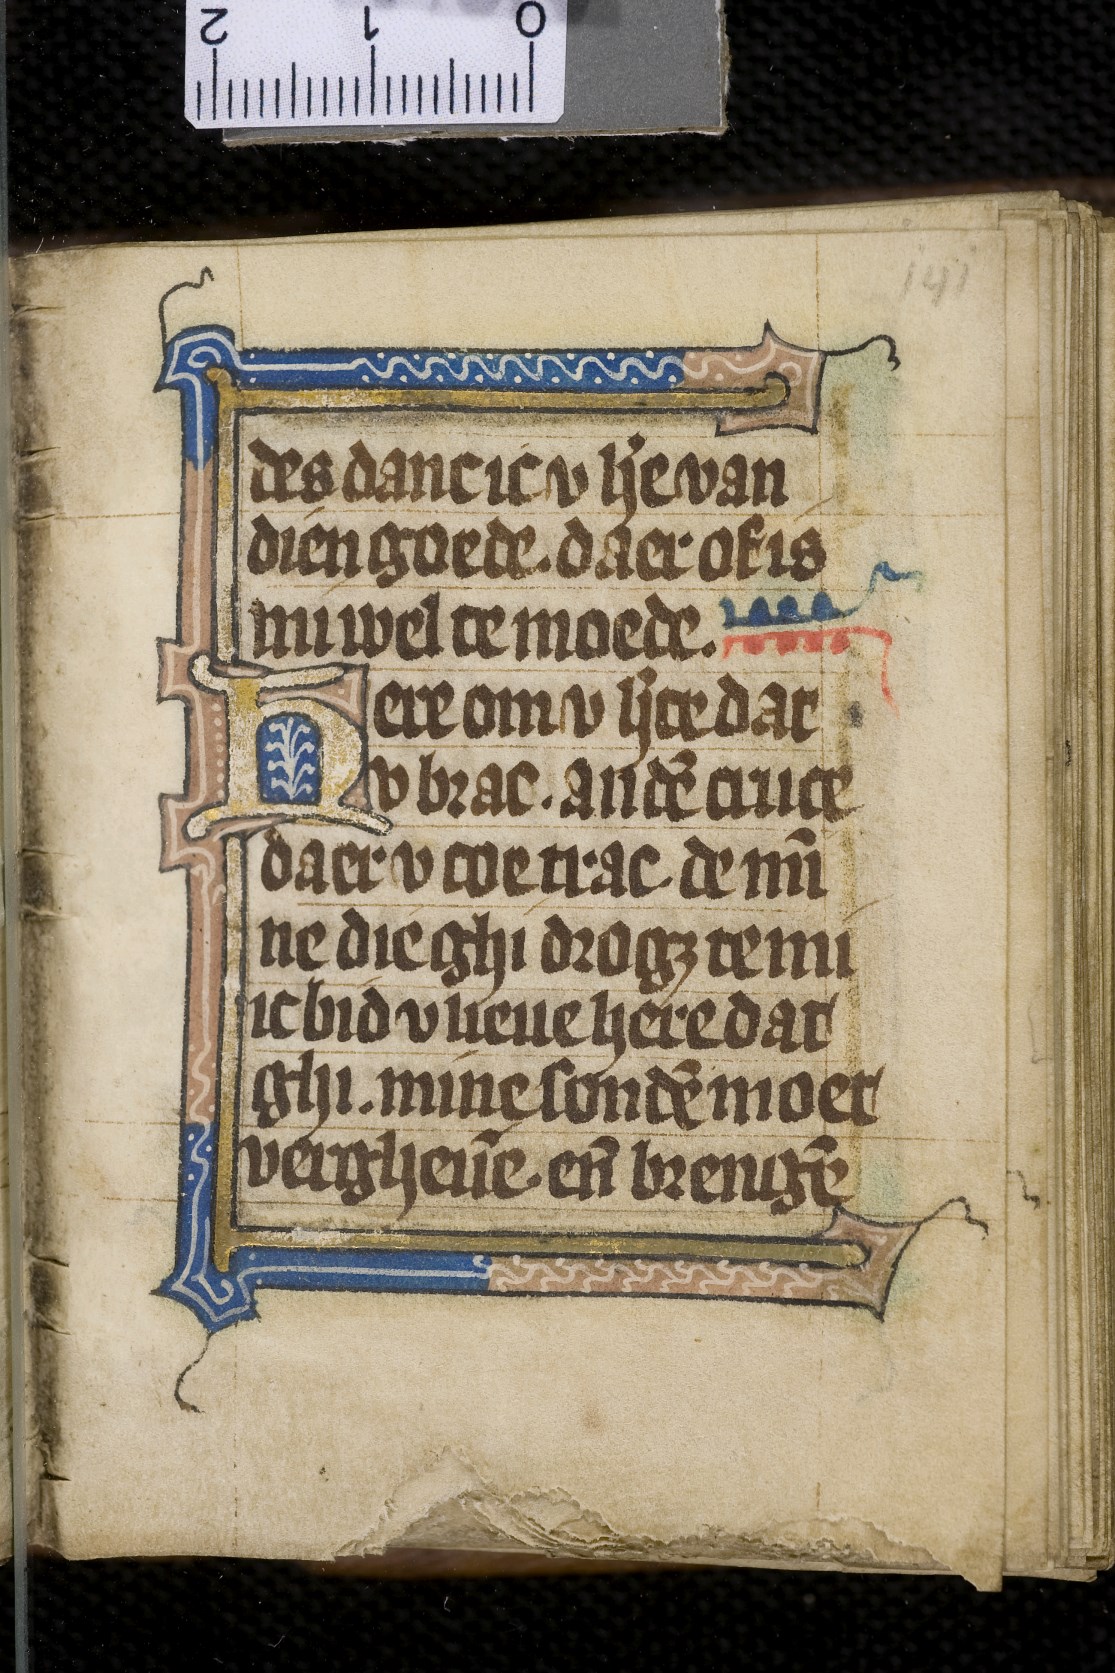 2 1 0
141
des danc ic v hr̄e van
dien goede. daer of is
mi wel te moede.
Here om v hr̄te dat
v brac. an dē cruce
daer v toe trac. de mī
ne die ghi drogꝫ te mi
ic bid v lieue here dat
ghi. mine sondē moet
vergheuē. eñ brenigē